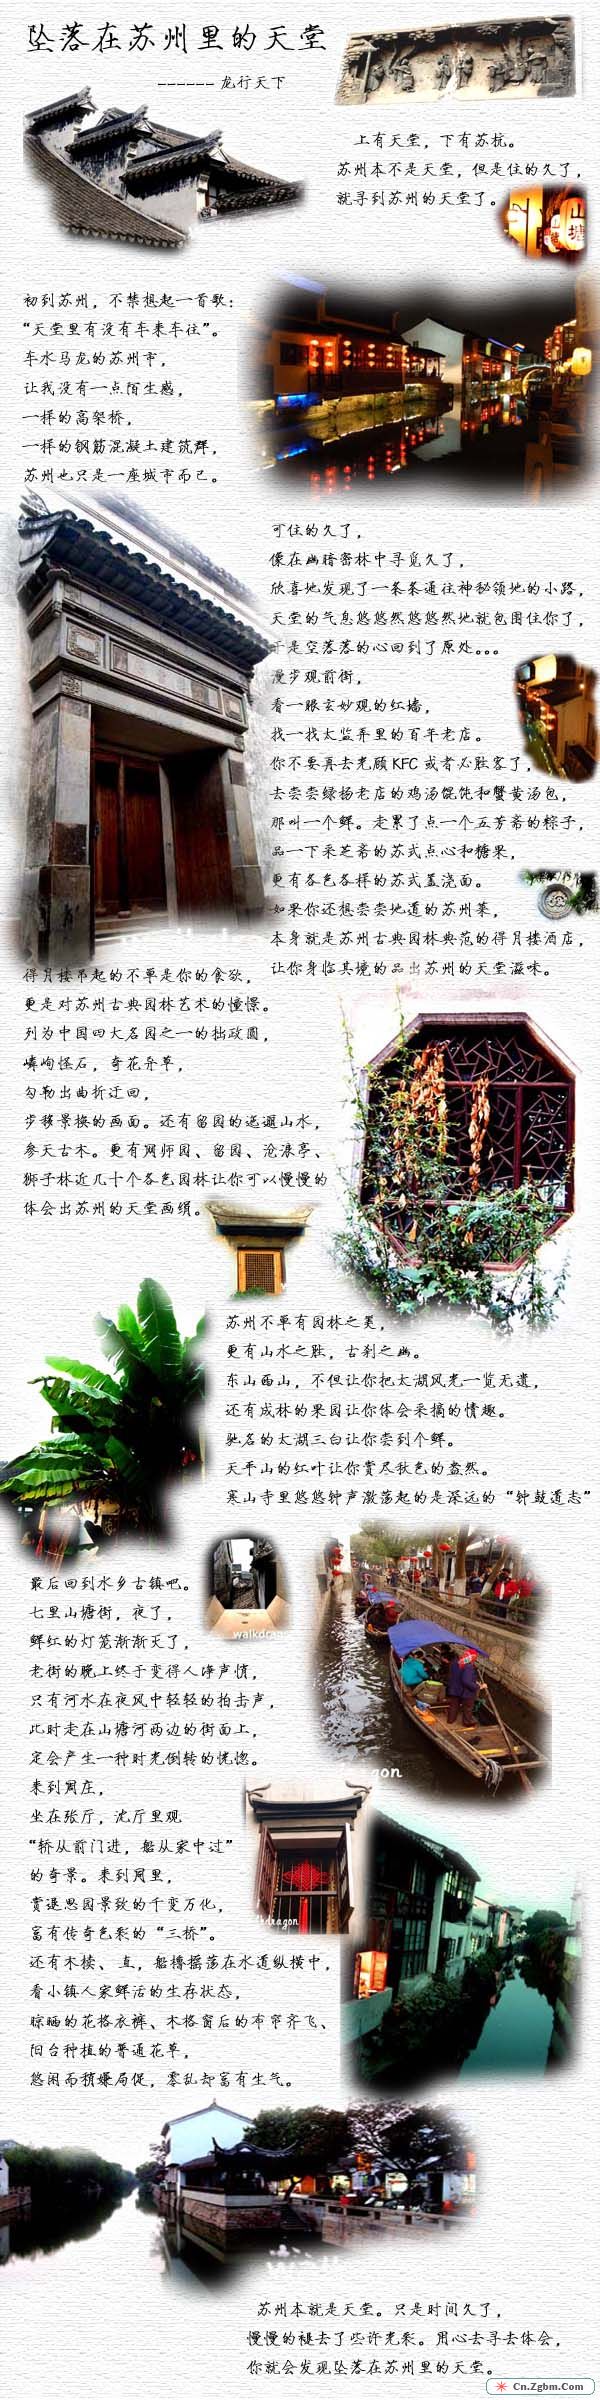 坠落在苏州里的天堂
------ 龙行天下
上有天堂，下有苏杭。
苏州本不是天堂，但是住的久了，
就寻到苏州的天堂了。
山塘
初到苏州，不禁想起一首歌：
“天堂里有没有车来车往”。
车水马龙的苏州市，
让我没有一点陌生感，
一样的高架桥，
一样的钢筋混凝土建筑群，
苏州也只是一座城市而已。
可住的久了，
像在幽暗密林中寻觅久了，
欣喜地发现了一条条通往神秘领地的小路，
天堂的气息悠悠然悠悠然地就包围住你了，
于是空落落的心回到了原处。。。
漫步观前街，
看一眼玄妙观的红墙，
找一找太监弄里的百年老店。
你不要再去光顾KFC或者必胜客了，
去尝尝绿杨老店的鸡汤馄饨和蟹黄汤包，
那叫一个鲜。走累了点一个五芳斋的粽子，
品一下采芝斋的苏式点心和糖果，
更有各色各样的苏式盖浇面。
如果你还想尝尝地道的苏州菜，
本身就是苏州古典园林典范的得月楼酒店，
让你身临其境的品出苏州的天堂滋味。
得月楼吊起的不单是你的食欲，
更是对苏州古典园林艺术的憧憬。
列为中国四大名园之一的拙政园，
嶙峋怪石，奇花异草，
勾勒出曲折迂回，
步移景换的画面。还有留园的迤逦山水，
参天古木。更有网师园、留园、沧浪亭、
狮子林近几十个各色园林让你可以慢慢的
体会出苏州的天堂画绢。
苏州不单有园林之美，
更有山水之胜，古刹之幽。
东山西山，不但让你把太湖风光一览无遗，
还有成林的果园让你体会采摘的情趣。
驰名的太湖三白让你尝到个鲜。
天平山的红叶让你赏尽秋色的盎然。
寒山寺里悠悠钟声激荡起的是深远的“钟鼓道志”
最后回到水乡古镇吧。
七里山塘街，夜了，
鲜红的灯笼渐渐灭了，
老街的晚上终于变得人净声悄，
只有河水在夜风中轻轻的拍击声，
此时走在山塘河两边的街面上，
定会产生一种时光倒转的恍惚。
来到周庄，
坐在张厅，沈厅里观
“轿从前门进，船从家中过”
的奇景。来到同里，
赏退思园景致的千变万化，
富有传奇色彩的“三桥”。
还有木椟、直，船橹摇荡在水道纵横中，
看小镇人家鲜活的生存状态，
晾晒的花格衣裤、木格窗后的布帘齐飞、
阳台种植的普通花草，
悠闲而稍嫌局促，零乱却富有生气。
苏州本就是天堂。只是时间久了，
慢慢的褪去了些许光彩。用心去寻去体会，
你就会发现坠落在苏州里的天堂。
Cn.Zgbm.Com